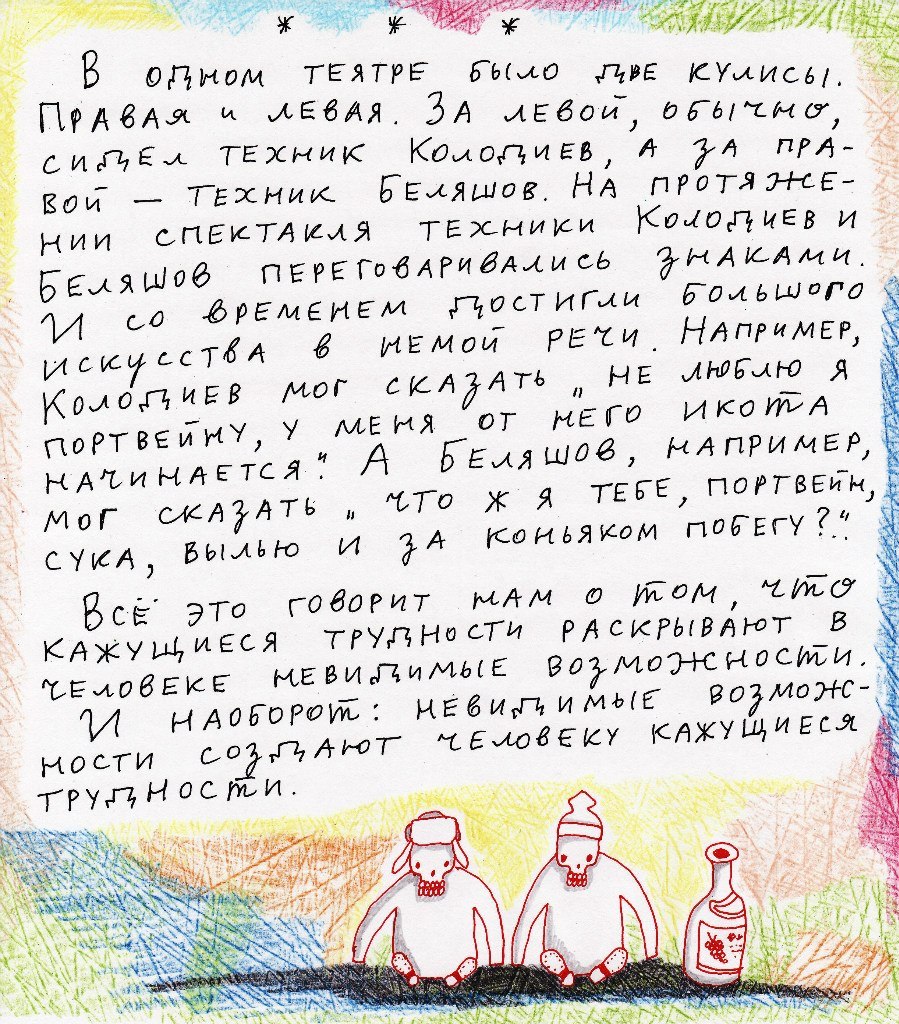 * * *
В одном театре было две кулисы.
Правая и левая. За левой, обычно,
сидел техник Колодиев, а за пра-
вой — техник Беляшов. На протяже-
нии спектакля техники Колодиев и
Беляшов переговаривались знаками.
И со временем достигли большого
искусства в немой речи. Например,
Колодиев мог сказать „не люблю я
портвейну, у меня от него икота
начинается". А Беляшов, например,
мог сказать „что ж я тебе, портвейн,
сука, вылью и за коньяком побегу?".
Всё это говорит нам о том, что
кажущиеся трудности раскрывают в
человеке невидимые возможности.
И наоборот: невидимые возмож-
ности создают человеку кажущиеся
трудности.